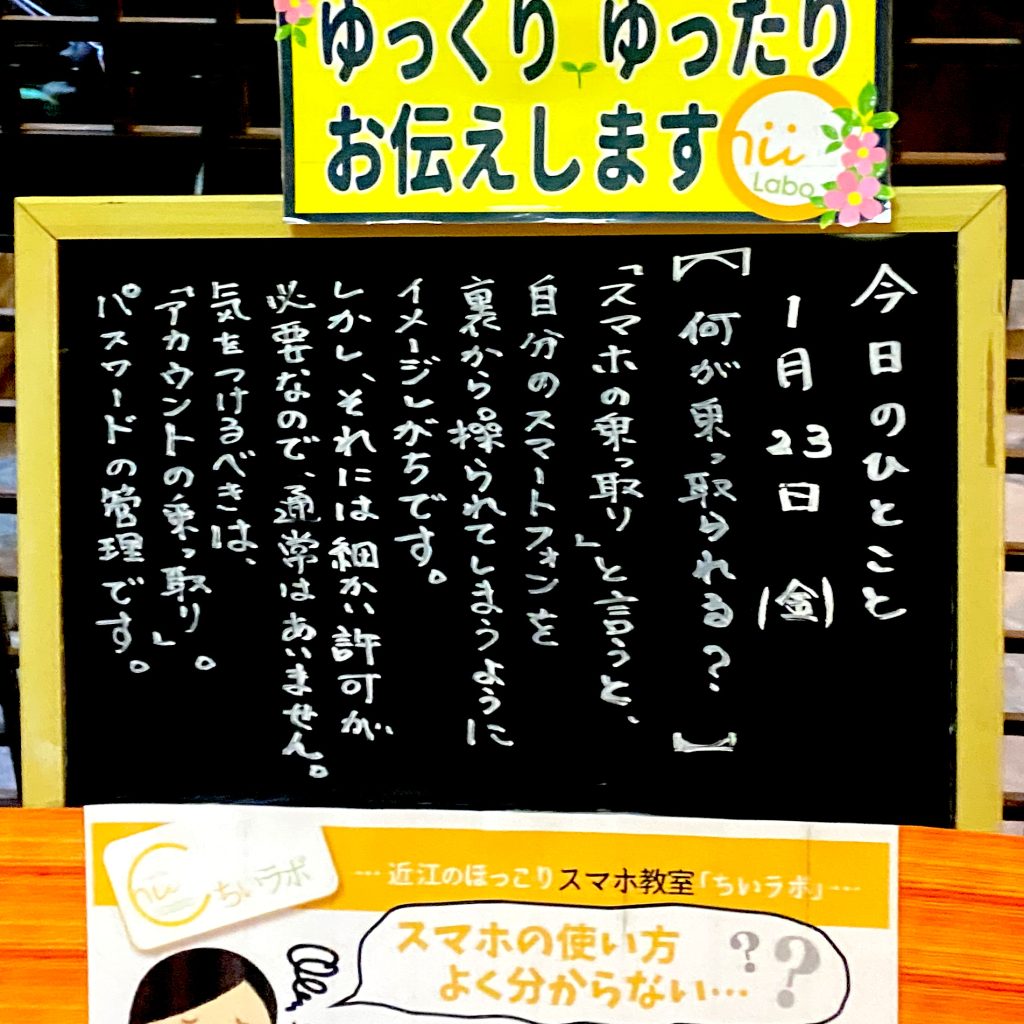 ゆっくり ゆったり
お伝えします
hii
Labo
今日のひとこと
1月23日(金)
【何が乗っ取られる？】
「スマホの乗っ取り」と言うと、
自分のスマートフォンを
裏から操られてしまうように
イメージしがちです。
しかし、それには細かい許可が
必要なので、通常はあいません。
気をつけるべきは、
「アカウントの乗っ取り」。
パスワードの管理です。
hii
ちいラボ
…近江のほっこりスマホ教室「ちいラボ」…
スマホの使い方
よく分からない…??